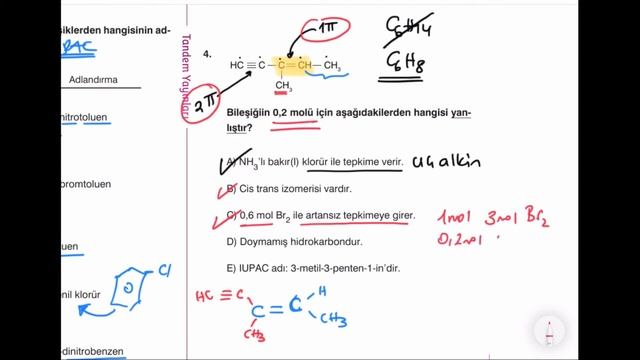 siklerden hangisinin ad-
Adlandırma
nitrotoluen
bromtoluen
uen
Cl
enil klorür
-dinitrobenzen
Tandem Yayınları
4.
1π
C₆H₁₄
C₆H₈
HC ≡ C - C = CH - CH₃
CH₃
2π
Bileşiğiin 0,2 molü için aşağıdakilerden hangisi yan-
lıştır?
A) NH₃'lı bakır(I) klorür ile tepkime verir. uç alkin
B) Cis trans izomerisi vardır.
C) 0,6 mol Br₂ ile artansız tepkimeye girer. 1mol 3mol Br₂
0,2mol
D) Doymamış hidrokarbondur.
E) IUPAC adı: 3-metil-3-penten-1-in'dir.
HC ≡ C H
C = C
CH₃ CH₃